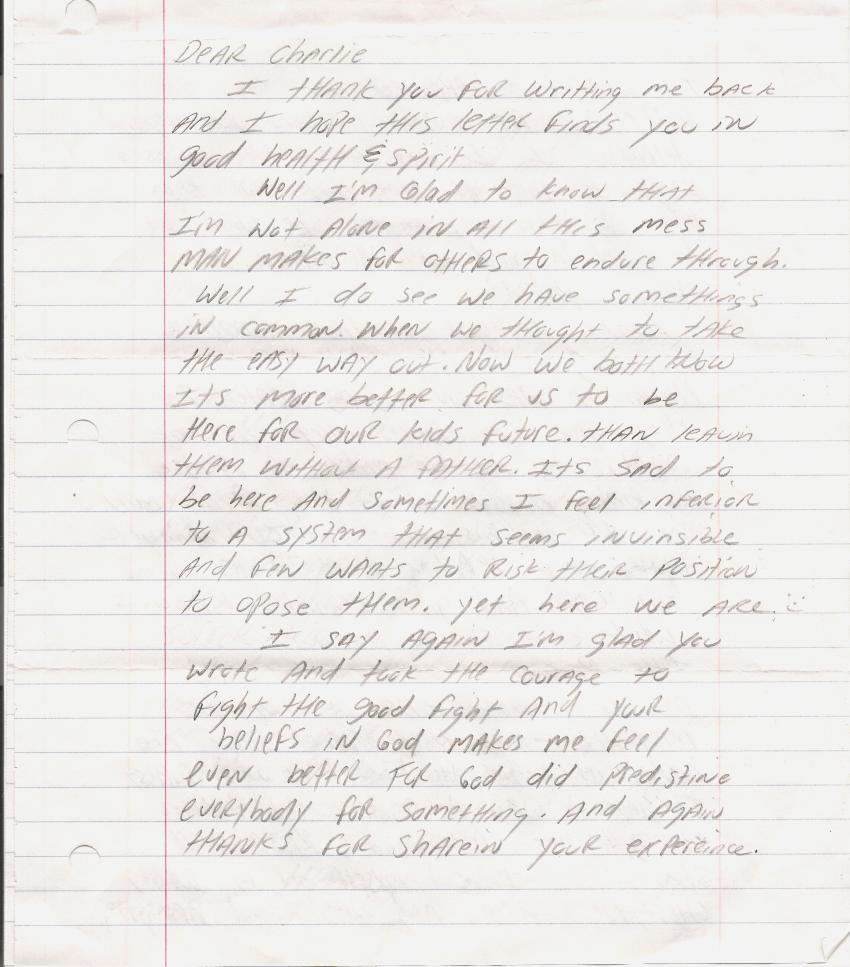 DEAR Charlie
I thank you for writting me back
And I hope this letter finds you in
good health & spirit
Well I'm Glad to know that
I'm Not Alone in All this mess
MAN MAKES for others to endure through.
Well I do see we have somethings
in common. When we thought to take
the easy way out. Now we both know
Its more better for us to be
Here for our kids future. than leavin
them without A father. Its sad to
be here And sometimes I feel inferior
to A system that seems invinsible
And few wants to Risk their position
to opose them. yet here we ARE. :)
I say again I'm glad you
wrote And took the courage to
fight the good fight And your
beliefs in God makes me feel
even better for God did predistine
everybody for something. And again
thanks for sharein your expereince.